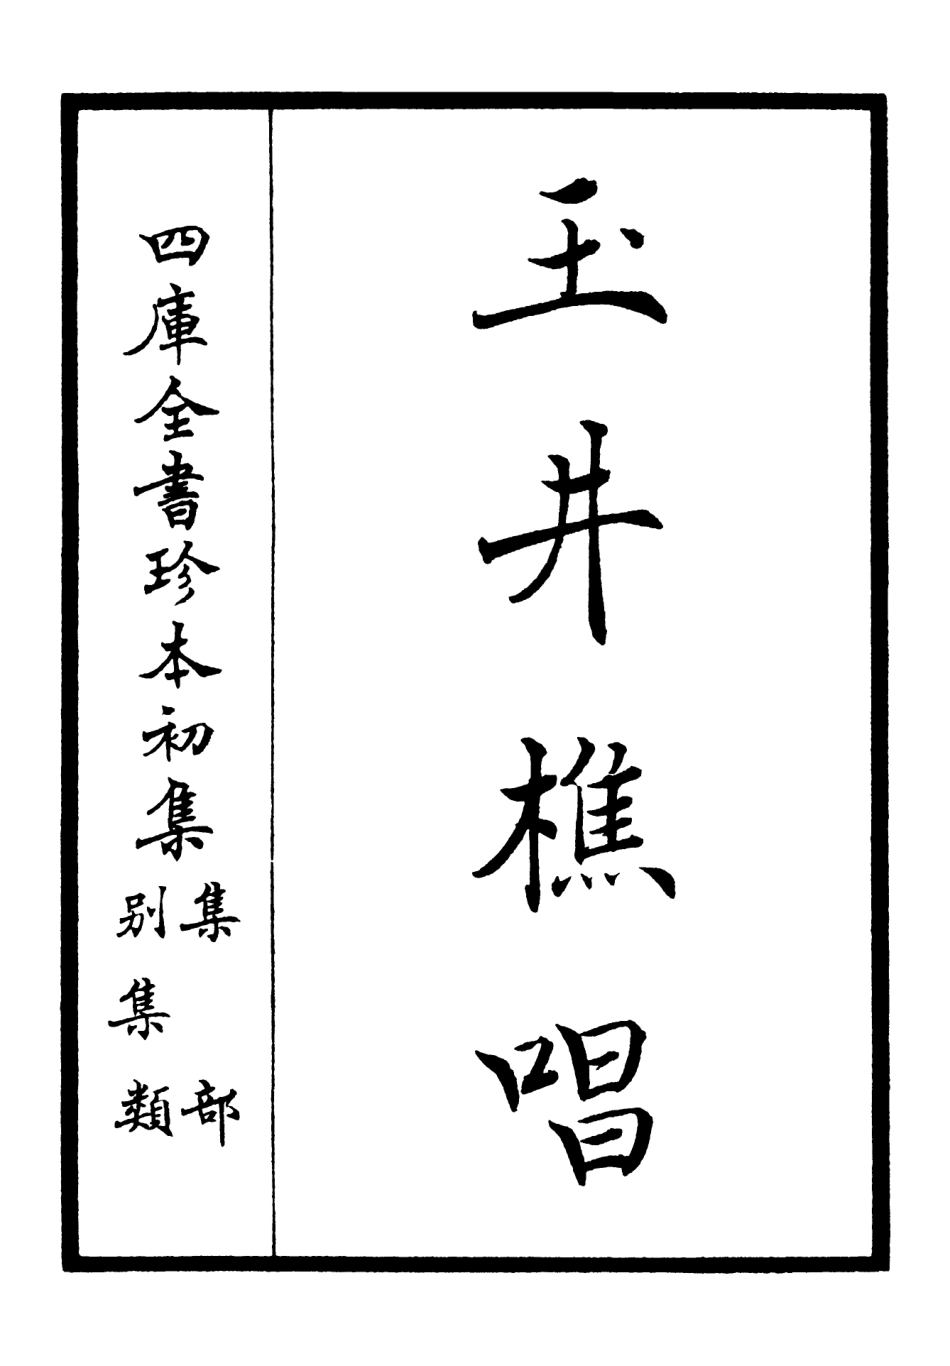 玉井樵唱
四庫全書珍本初集
集部
別集類